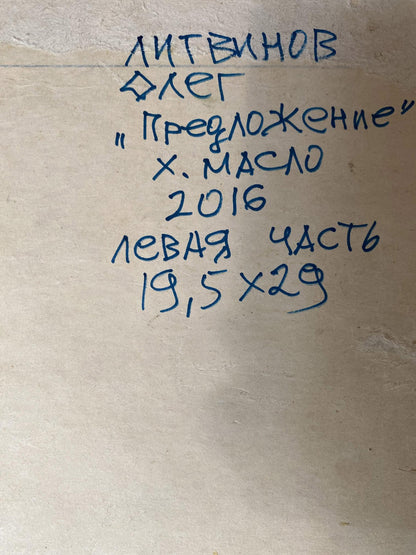 ЛИТВИНОВ
ОЛЕГ
„Предложение"
Х. МАСЛО
2016
ЛЕВАЯ ЧАСТЬ
19,5×29